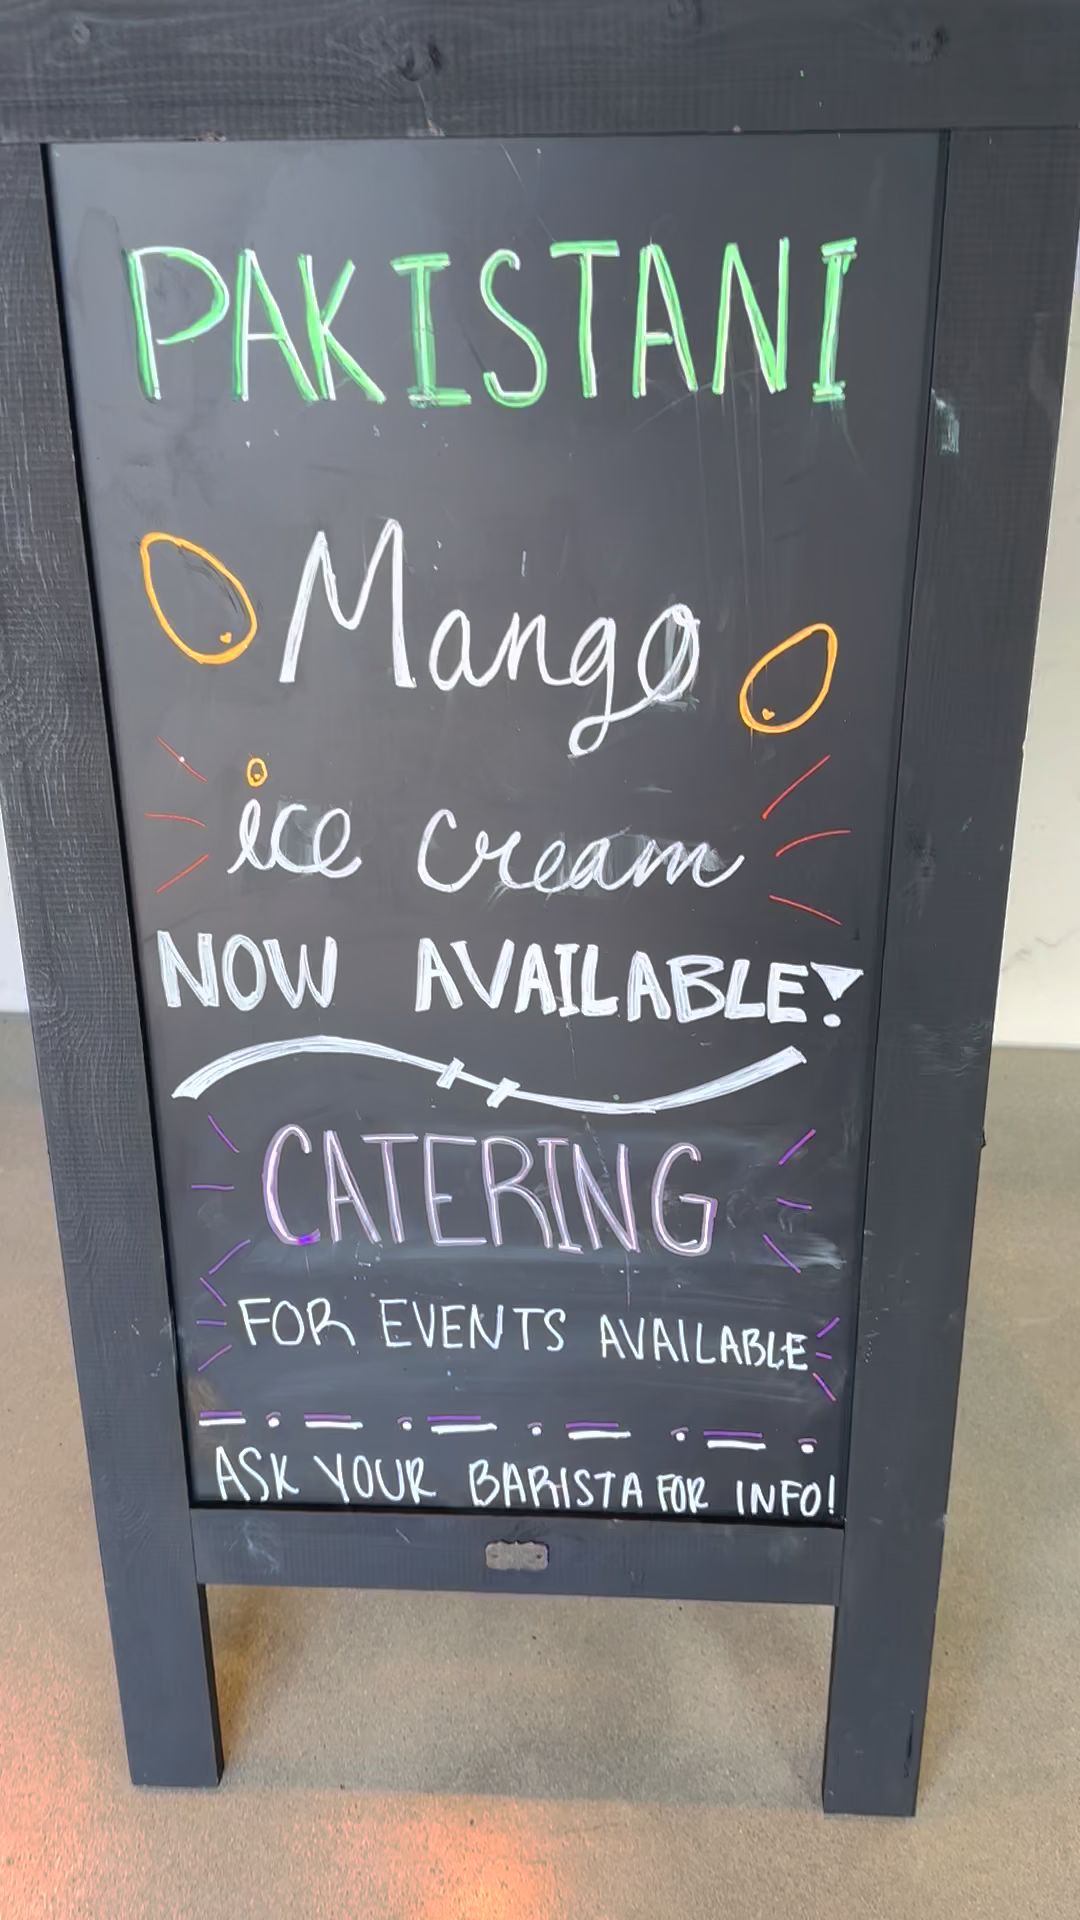 PAKISTANI
Mango
ice cream
NOW AVAILABLE!
CATERING
FOR EVENTS AVAILABLE
ASK YOUR BARISTA FOR INFO!